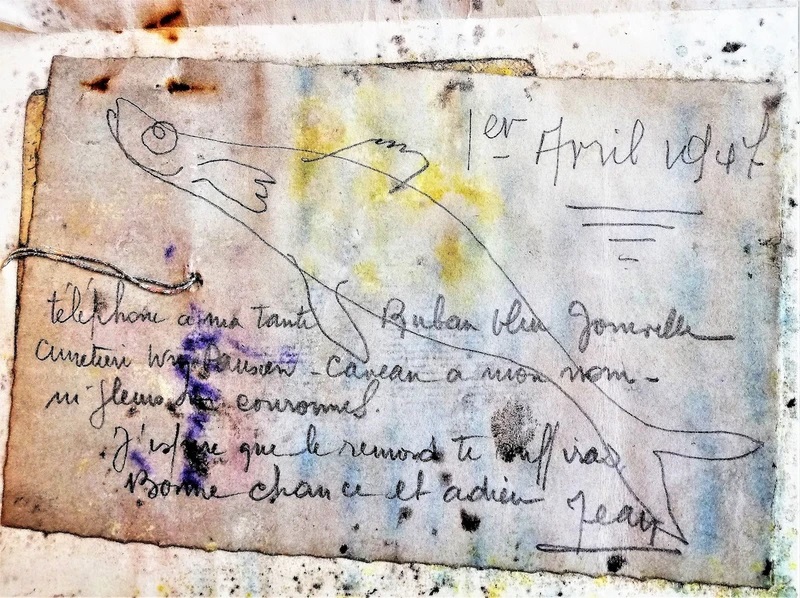 1er Avril 1947
téléphone a ma tante Ruban bleu Joinville
Cimetière Parisien - caveau a mon nom -
ni fleurs ni couronnes.
J'espère que le remord te suffira
Bonne chance et adieu Jean